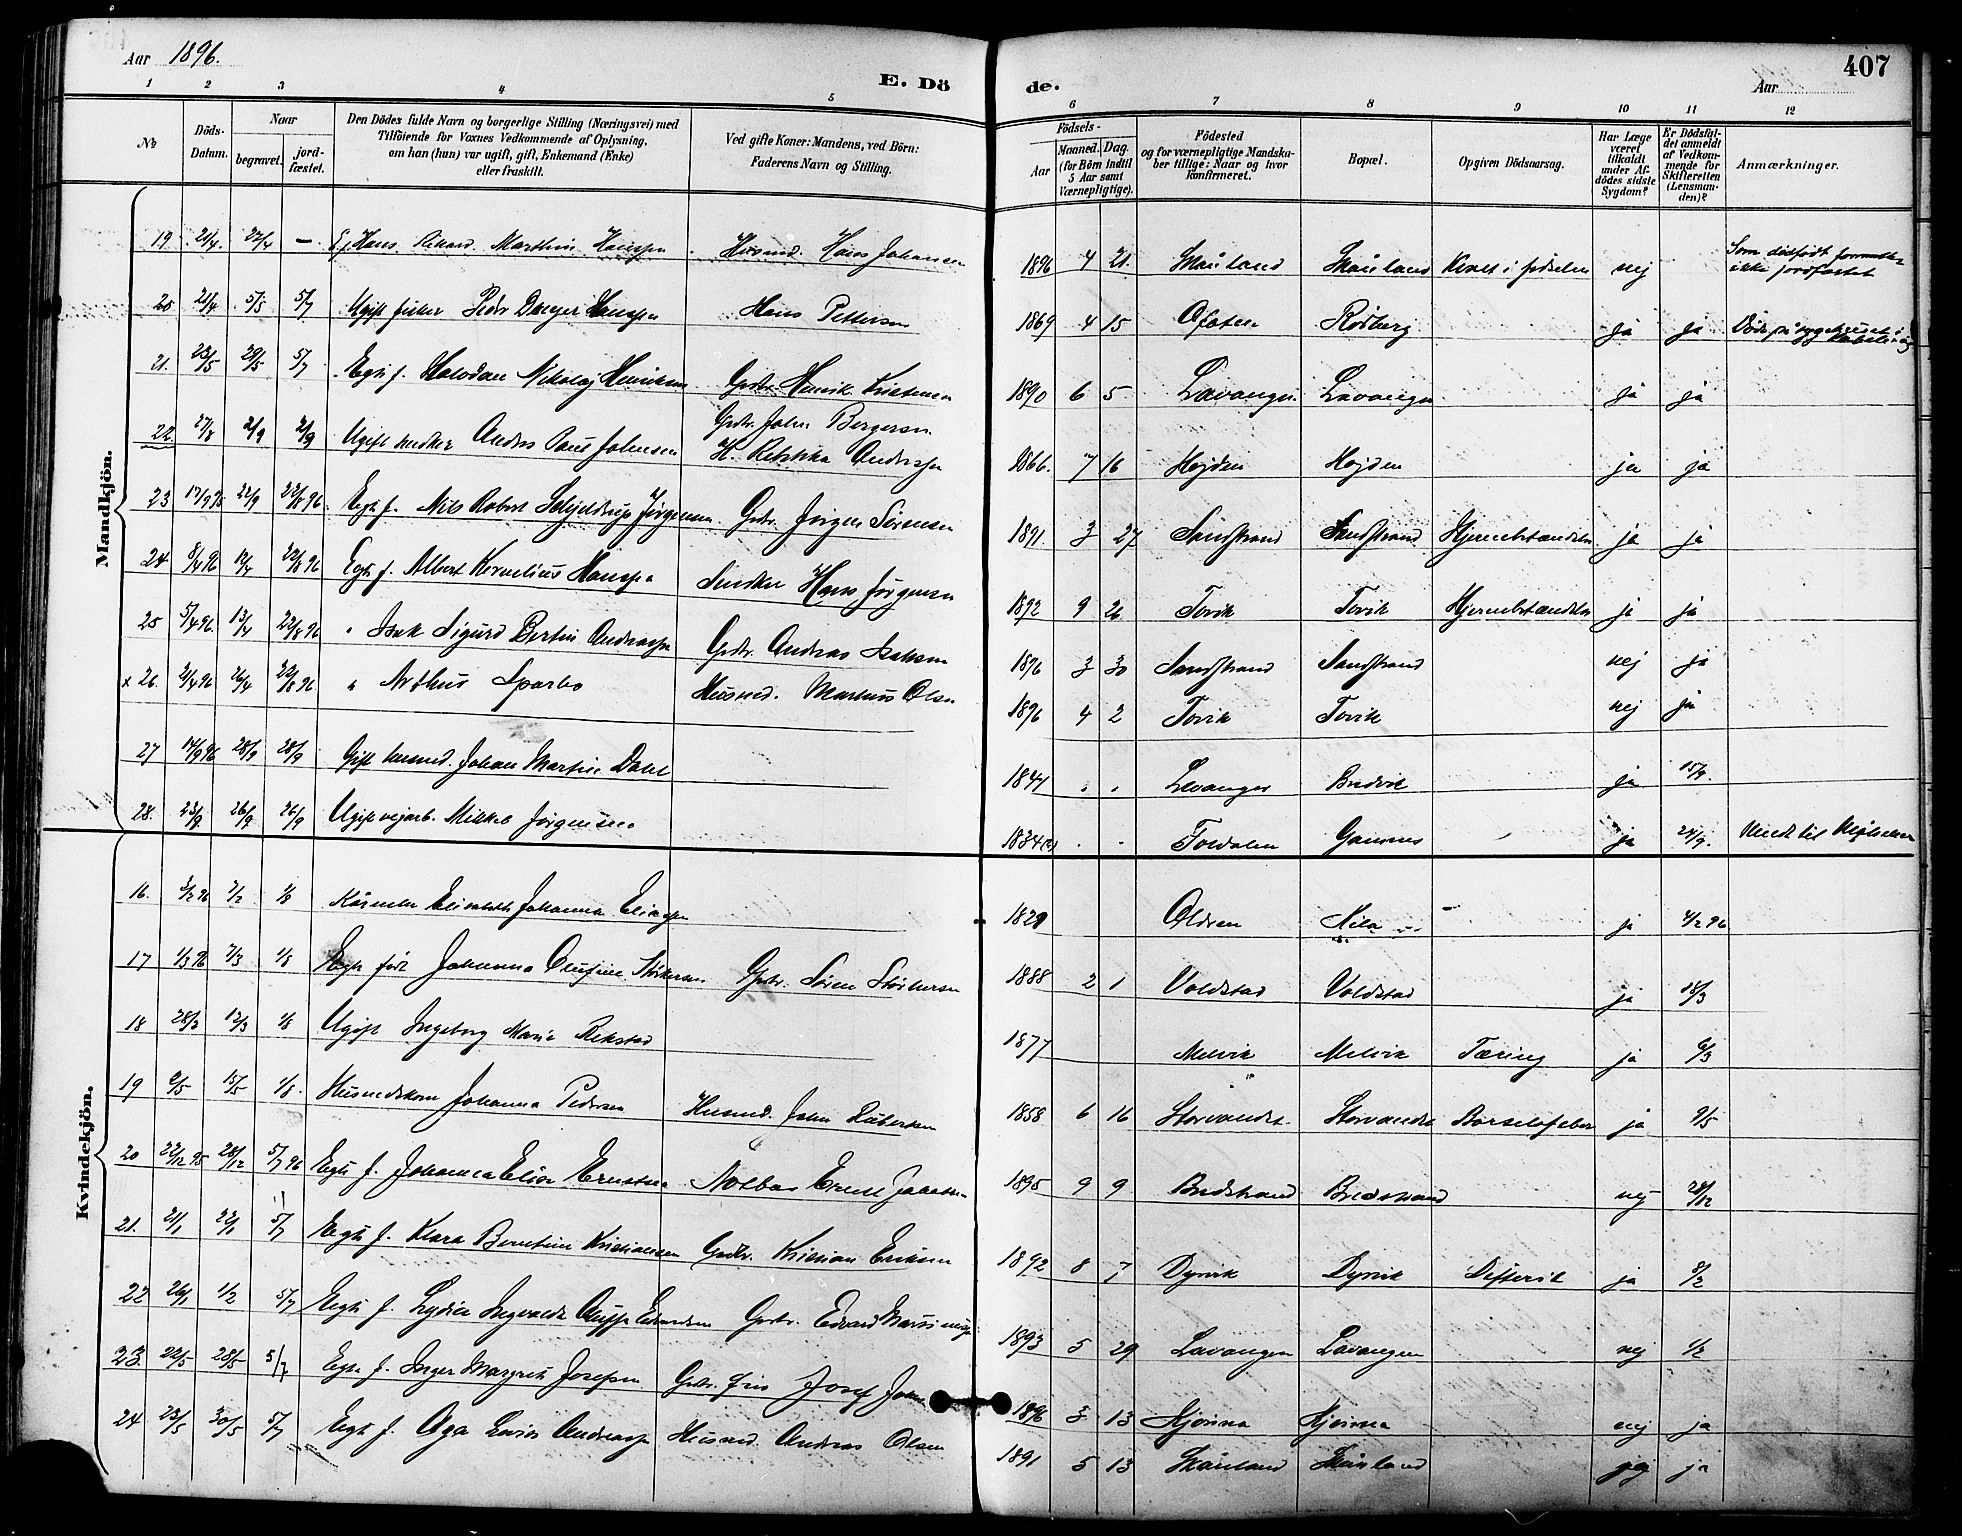 Aar 1896.
E. Dö de.
Aar
407
1 2 3 4 5 6 7 8 9 10 11 12
No
Döds-Datum.
Naar
begravet.
jord-fæstet.
Den Dödes fulde Navn og borgerlige Stilling (Næringsvei) med
Tilföiende for Voxnes Vedkommende af Oplysning,
om han (hun) var ugift, gift, Enkemand (Enke)
eller fraskilt.
Ved gifte Koner: Mandens, ved Börn:
Faderens Navn og Stilling.
Födsels-
Aar
Maaned. Dag.
(for Börn indtil
5 Aar samt
Værnepligtige).
Födested
og for værnepligtige Mandska-
ber tillige: Naar og hvor
konfirmeret.
Bopæl.
Opgiven Dödsaarsag.
Har Læge
været
tilkaldt
under Af-
dödes sidste
Sygdom?
Er Dödsfal-
det anmeldt
af Vedkom-
mende for
Skifteretten
(Lensman-
den)?
Anmærkninger.
Mandkjön.
19 21/4 22/4 — Hans Rikard Marthin Hanssen Husmd. Hans Johansen 1896 4 21 Skånland Skånland Kvalt i fødselen nej Som dødfødt formentl. ikke jordfæstet
20 21/4 5/5 5/7 Ugift fisker Peder Dreyer Hanssen Hans Pettersen 1869 4 15 Ofoten ja ja
21. 23/5 29/5 5/7 Egte f. Halvdan Nikolaj Henriksen Gbr. Henrik Kristensen 1890 6 5 Lavangen Lavangen ja ja
22. 27/8 2/9 2/9 Ugift Anders Paul Johnsen Gbr. John Bergersen H. Rebekka Anderssen 1866 7 16 Højden Højden ja ja
23 17/9 95 22/9 22/8 96 Egte f. Nils Robert Schjeldrup Jørgensen Gbr. Jørgen Sørensen 1891 3 27 Sandstrand Sandstrand Hjernebetændelse ja ja
24 8/4 96 12/4 22/8 96 Egte f. Albert Kornelius Hanssen Hans Jørgensen 1892 9 26 Tovik Tovik Hjernebetændelse ja ja
25 5/4 96 13/4 22/8 96 " Isak Sigurd Bertin Andreassen Gbr. Andreas Isaksen 1896 3 30 Sandstrand Sandstrand nej ja
x 26. 21/4 96 26/4 22/8 96 " Arthus Sparbo Husmd. Markus Olsen 1896 4 2 Tovik Tovik nej ja
27 14/9 96 28/9 28/9 Gift husmd. Johan Martin Dahl 1847 " " Levanger Bredvik ja 15/9.
28. 23/9 26/9 26/9 Ugift vejarb. Mikkel Jørgensen 1834 (?) " " Foldalen Gamnes ja 24/9.
Kvindekjön.
16. 3/2 96 7/2 1/8 Elisabeth Johanna Eliassen 1829 Oldren ja 4/2 96
17 1/3 96 7/3 1/8 Egte født Johanna Olufine Størkersen Gbr. Søren Størkersen 1888 2 1 Voldstad Voldstad ja 18/3
18 28/3 12/3 1/8 Ugift Ingeborg Marie Rekstad 1877 Melvik Melvik Tæring ja 6/3
19 9/5 15/5 1/8. Husmdskone Johanna Pedersen Husmd. John Rubertsen 1858 6 16 Storvandet Storvandet Barselsfeber ja 9/5
20 22/12 95 28/12 5/7 96 Egte f. Johanna Elise Ernstsen Ernst Jakobsen 1895 9 9 Bredstrand Bredstrand nej 28/12
21. 21/1 22/1 5/7 Egte f. Klara Berntine Kristiansen Gbr. Kristian Eriksen 1892 8 7 Dyrvik Dyrvik Difterit ja 8/2
22 26/1 1/2 5/7 Egte f. Lydia Ingvalda Edvardsen Gbr. Edvard 1893 5 29 Lavangen Lavangen nej 1/2
23. 22/5 28/5 5/7 Egte f. Inger Margrete Josefsen Gbr. Josef 1896 3 13 nej ja
24 23/5 30/5 5/7 Egte f. Aga Lovise Andreassen Husmd. Andreas Olsen 1891 5 13 Skånland Skånland ja